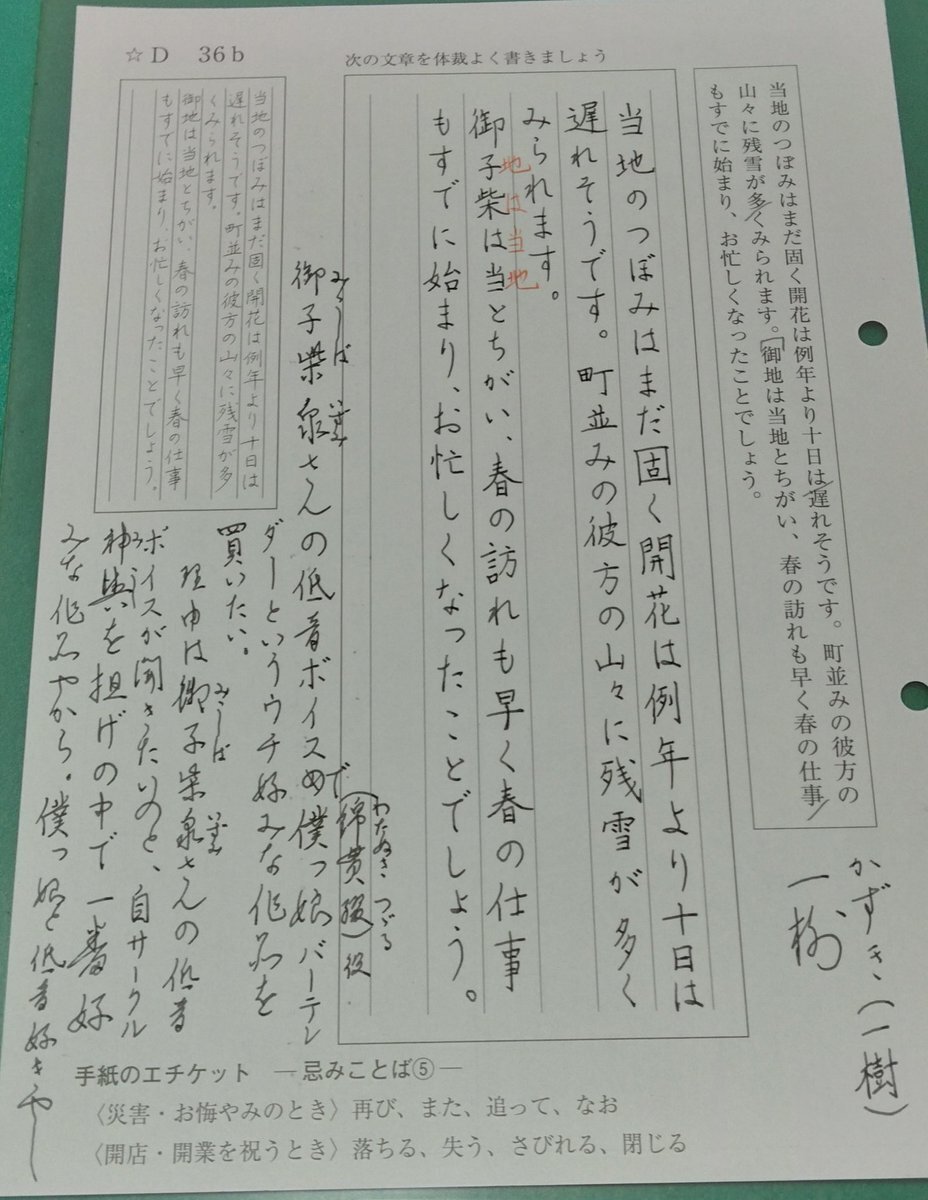 ☆D 36b
次の文章を体裁よく書きましょう
当地のつぼみはまだ固く開花は例年より十日は遅れそうです。町並みの彼方の
山々に残雪が多くみられます。御地は当地とちがい、春の訪れも早く春の仕事
もすでに始まり、お忙しくなったことでしょう。
当地のつぼみはまだ固く開花は例年より十日は
遅れそうです。町並みの彼方の山々に残雪が多く
みられます。
御子柴は当とちがい、春の訪れも早く春の仕事
地は当地
もすでに始まり、お忙しくなったことでしょう。
当地のつぼみはまだ固く開花は例年より十日は
遅れそうです。町並みの彼方の山々に残雪が多
くみられます。
御地は当地とちがい、春の訪れも早く春の仕事
もすでに始まり、お忙しくなったことでしょう。
かずき(一樹)
一樹
みこしば いずみ
わたぬき つづる
御子柴泉さんの低音ボイスで僕っ娘バーテン
(綿貫綴)役
ダーというウチ好みな作品を
買いたい。
みこしば いずみ
理由は御子柴泉さんの低音
ボイスが聞きたいのと、自サークル
神輿を担げの中で一番好
みな作品やから。僕っ娘と低音好きやし
手紙のエチケット ―忌みことば⑤―
〈災害・お悔やみのとき〉再び、また、追って、なお
〈開店・開業を祝うとき〉落ちる、失う、さびれる、閉じる